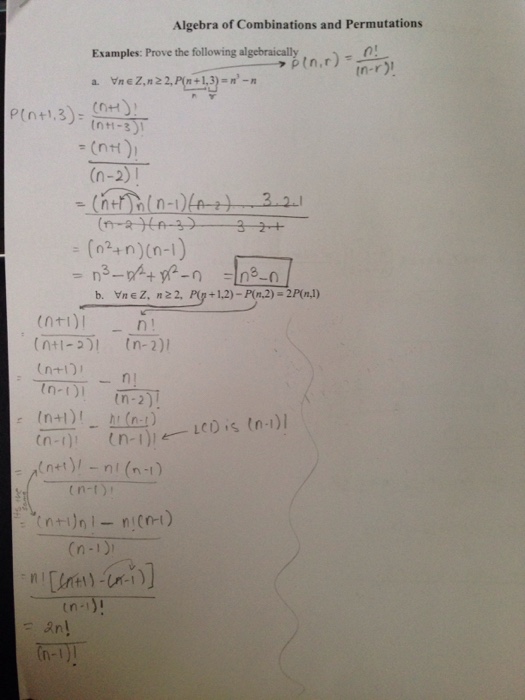 Algebra of Combinations and Permutations
Examples: Prove the following algebraically
P(n,r) = n!/(n-r)!
a. ∀n ∈ Z, n ≥ 2, P(n+1,3) = n³ - n
n r
P(n+1,3) = (n+1)!/(n+1-3)!
= (n+1)!/(n-2)!
= (n+1)n(n-1)(n-2)...3.2.1/(n-2)(n-3) 3 2.1
= (n²+n)(n-1)
= n³-n²+n²-n = n³-n
b. ∀n ∈ Z, n ≥ 2, P(n+1,2) - P(n,2) = 2P(n,1)
= (n+1)!/(n+1-2)! - n!/(n-2)!
= (n+1)!/(n-1)! - n!/(n-2)!
= (n+1)!/(n-1)! - n!(n-1)/(n-1)! ← LCD is (n-1)!
= (n+1)! - n!(n-1)/(n-1)!
= (n+1)n! - n!(n-1)/(n-1)!
= n![(n+1)-(n-1)]/(n-1)!
= 2n!/(n-1)!